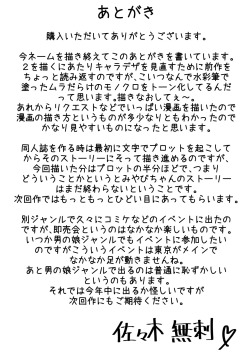 あとがき
購入いただいてありがとうございます。
今ネームを描き終えてこのあとがきを書いています。
2を描くにあたりキャラデザを見直すために前作を
ちょっと読み返すのですが、こいつなんで水彩筆で
塗ったムラだらけのモノクロをトーン化してるんだ
って思います。描きなおしてぇ〜。
あれからリクエストなどでいっぱい漫画を描いたので
漫画の描き方というものが多少なりともわかったので
かなり見やすいものになったと思います。
同人誌を作る時は最初に文字でプロットを起こして
からそのストーリーにそって描き進めるのですが、
今回描いた分はプロットの半分ほどで、つまり
どういうことかというとみやびちゃんのストーリー
はまだ終わらないということです。
次回作ではもっともっとひどい目にあってもらいます。
別ジャンルで久々にコミケなどのイベントに出たの
ですが、即売会というのはなかなか楽しいものです。
いつか男の娘ジャンルでもイベントに参加したい
のですがこういうイベントは東京がメインで
なかなか足が動きませんね。
あと男の娘ジャンルで出るのは普通に恥ずかしい
というのもあります。
それでは今年中に出るか怪しいですが
次回作にもご期待ください。
佐々木 無刺